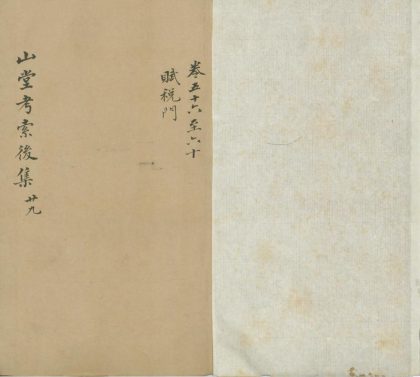 卷五十六至六十
賦税門
山堂考索後集 廿九